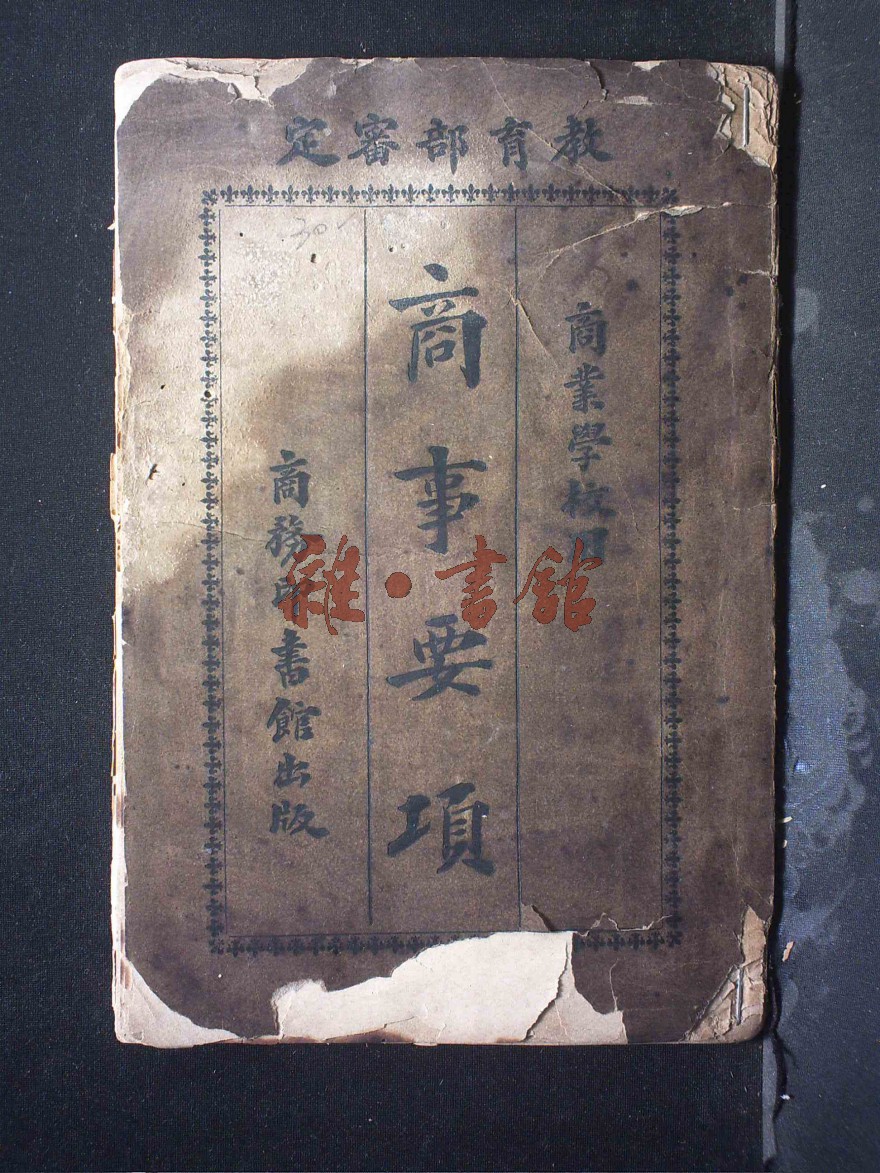 教育部審定
商業學校用
商事要項
商務印書館出版
雜·書館